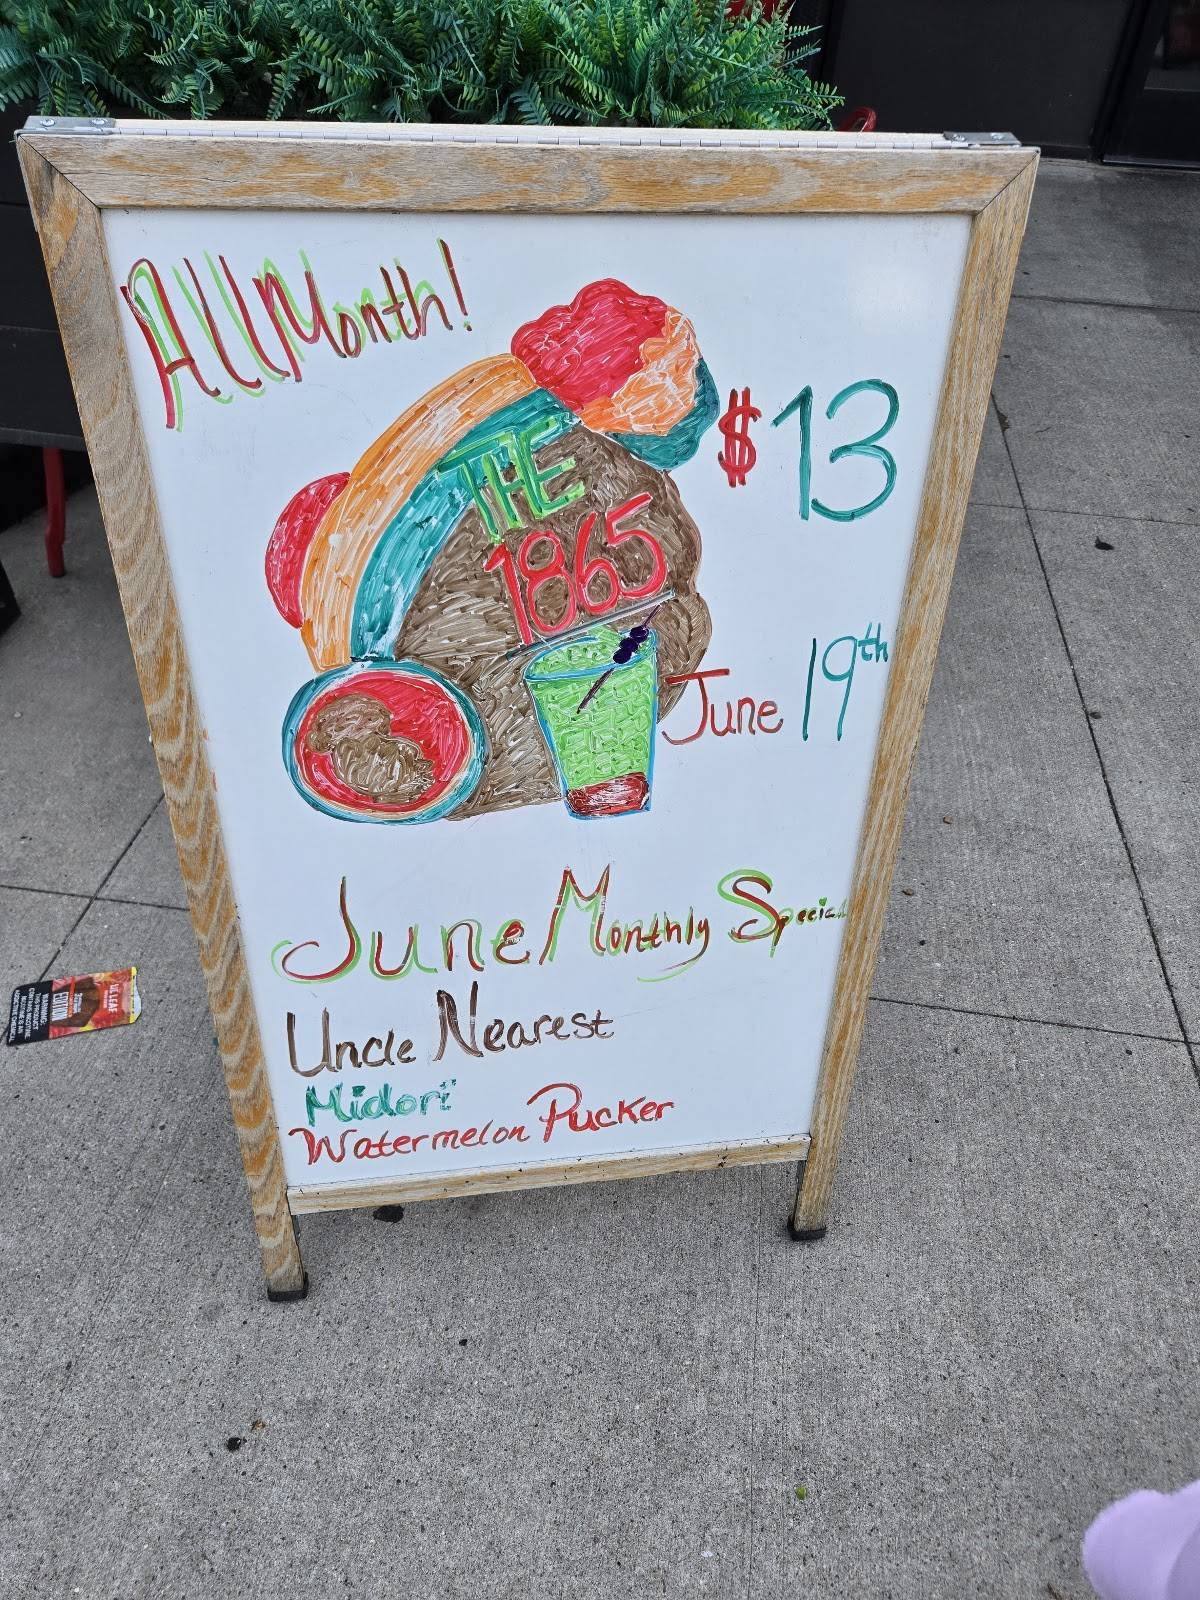 All Month!
$13
THE
1865
June 19th
June Monthly Special
Uncle Nearest
Midori
Watermelon Pucker